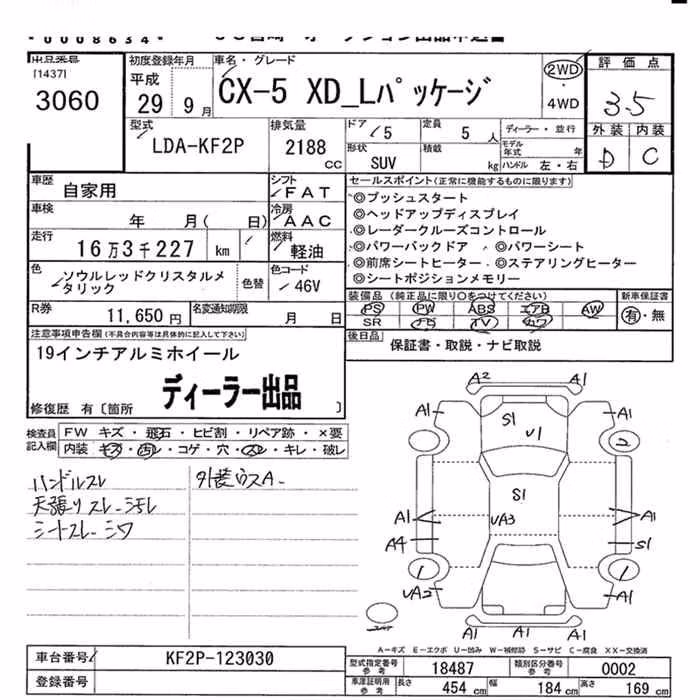 00008634
出品番号
[1437]
3060
初度登録年月
平成
29 9月
車名・グレード
CX-5 XD_Lパッケージ
2WD
・
4WD
評価点
3.5
外装 内装
D C
型式
LDA-KF2P
排気量
2188
cc
ドア
5
定員
5人
ディーラー・並行
形状
SUV
積載
kg
モデル年式 年
ハンドル 左・右
車歴
自家用
シフト
FAT
車検
年 月( 日)
冷房
AAC
走行
16万3千227 km
燃料
軽油
色
ソウルレッドクリスタルメタリック
色替
色コード
46V
R券
11,650円
名変通知期限
月 日
セールスポイント(正常に機能するものに限ります)
◎プッシュスタート
◎ヘッドアップディスプレイ
◎レーダークルーズコントロール
◎パワーバックドア ◎パワーシート
◎前席シートヒーター ◎ステアリングヒーター
◎シートポジションメモリー
装備品(純正品に限り○をつけてください)
PS PW ABS エアB AW
SR ナビ TV カワ
新車保証書
有・無
後日品
保証書・取説・ナビ取説
注意事項申告欄(不具合内容等は具体的に記入して下さい)
19インチアルミホイール
ディーラー出品
修復歴 有〔箇所 〕
検査員記入欄
FW キズ・飛石・ヒビ割・リペア跡・×要
内装・キズ・汚レ・コゲ・穴・スレ・キレ・破レ
ハンドルスレ
天張りスレ-ヨゴレ
シートスレ-シワ
外装ウスA-
A2 A1
A1 A1
S1
U1
2
S1
A1 UA3 A1
A4 S1
1 1
UA2 A1
A1 A1
A-キズ E-エクボ U-凹み W-補修跡 S-サビ C-腐食 XX-交換済
車台番号
KF2P-123030
登録番号
型式指定番号
参考
18487
類別区分番号
参考
0002
車庫証明用
参考
長さ 454 cm 幅 184 cm 高さ 169 cm